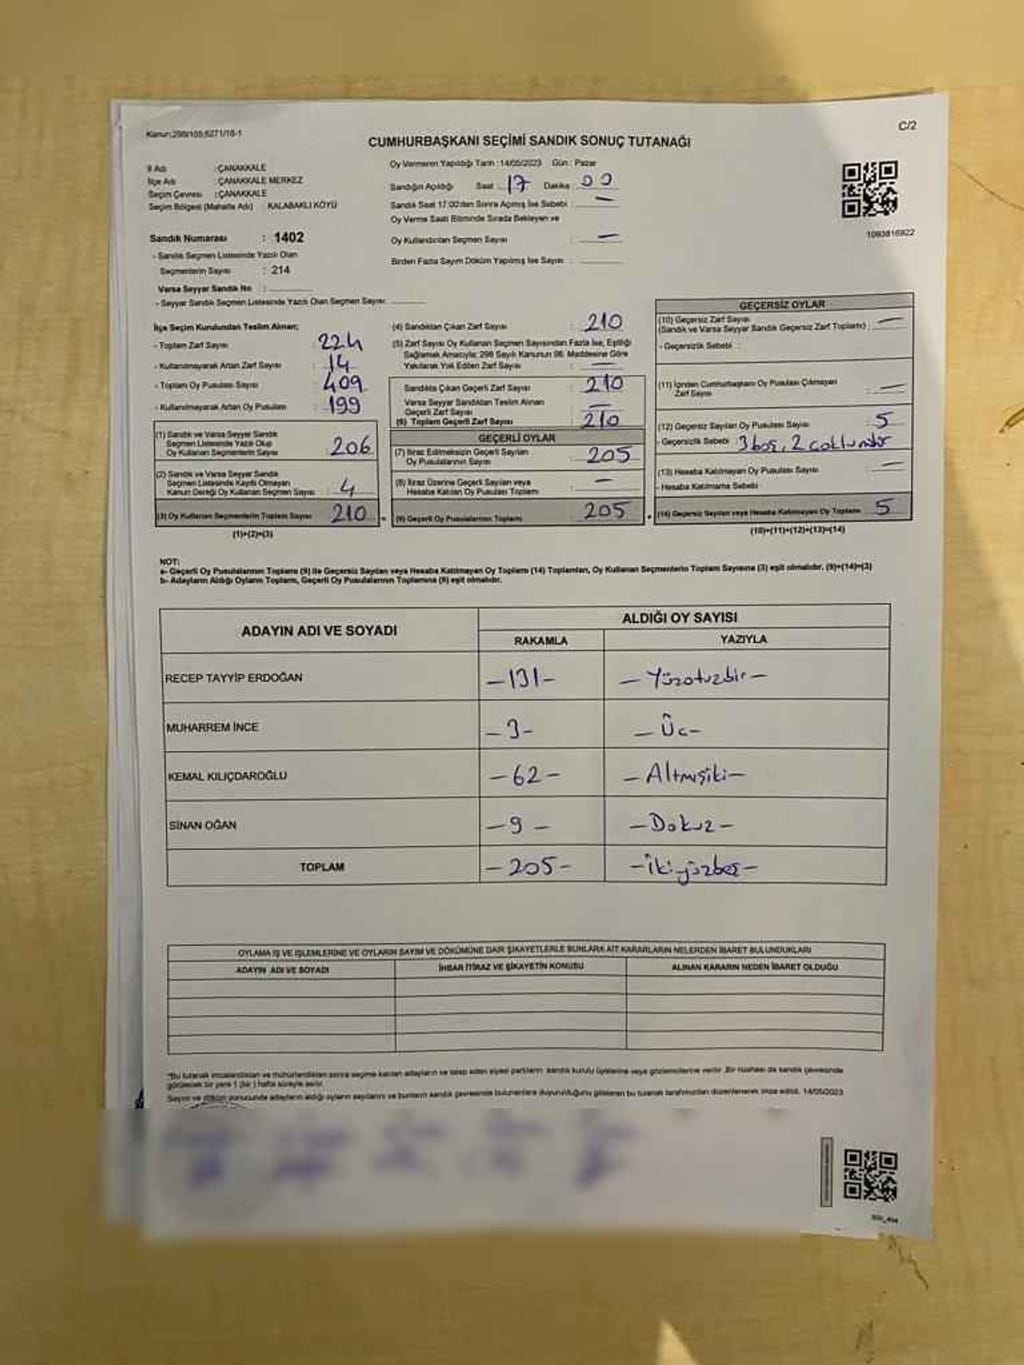 Kanun;298/105;6271/16-1
C/2
CUMHURBAŞKANI SEÇİMİ SANDIK SONUÇ TUTANAĞI
İl Adı : ÇANAKKALE
İlçe Adı : ÇANAKKALE MERKEZ
Seçim Çevresi : ÇANAKKALE
Seçim Bölgesi (Mahalle Adı) : KALABAKLI KÖYÜ
Sandık Numarası : 1402
- Sandık Seçmen Listesinde Yazılı Olan
Seçmenlerin Sayısı : 214
Varsa Seyyar Sandık No :
- Seyyar Sandık Listesinde Yazılı Olan Seçmen Sayısı:
Oy Vermenin Yapıldığı Tarih : 14/05/2023 Gün : Pazar
Sandığın Açıldığı Saat : 17 Dakika : 00
Sandık Saat 17:00'den Sonra Açılmış İse Sebebi : —
Oy Verme Saati Bitiminde Sırada Bekleyen ve
Oy Kullandırılan Seçmen Sayısı : —
Birden Fazla Sayım Döküm Yapılmış İse Sayısı :
1093816922
İlçe Seçim Kurulundan Teslim Alınan;
- Toplam Zarf Sayısı : 224
- Kullanılmayarak Artan Zarf Sayısı : 14
- Toplam Oy Pusulası Sayısı : 409
- Kullanılmayarak Artan Oy Pusulası : 199
(1) Sandık ve Varsa Seyyar Sandık
Seçmen Listesinde Yazılı Olup
Oy Kullanan Seçmenlerin Sayısı : 206
(2) Sandık ve Varsa Seyyar Sandık
Seçmen Listesinde Kayıtlı Olmayan
Kanun Gereği Oy Kullanan Seçmen Sayısı : 4
(3) Oy Kullanan Seçmenlerin Toplam Sayısı : 210
(1)+(2)=(3)
(4) Sandıktan Çıkan Zarf Sayısı : 210
(5) Zarf Sayısı Oy Kullanan Seçmen Sayısından Fazla İse, Eşitliği
Sağlamak Amacıyla; 298 Sayılı Kanunun 98. Maddesine Göre
Yakılarak Yok Edilen Zarf Sayısı : —
Sandıkta Çıkan Geçerli Zarf Sayısı : 210
Varsa Seyyar Sandıktan Teslim Alınan
Geçerli Zarf Sayısı : —
(6) Toplam Geçerli Zarf Sayısı : 210
GEÇERLİ OYLAR
(7) İtiraz Edilmeksizin Geçerli Sayılan
Oy Pusulalarının Sayısı : 205
(8) İtiraz Üzerine Geçerli Sayılan veya
Hesaba Katılan Oy Pusulası Toplamı : —
(9) Geçerli Oy Pusulalarının Toplamı : 205
GEÇERSİZ OYLAR
(10) Geçersiz Zarf Sayısı
(Sandık ve Varsa Seyyar Sandık Geçersiz Zarf Toplamı) : —
- Geçersizlik Sebebi :
(11) İçinden Cumhurbaşkanı Oy Pusulası Çıkmayan
Zarf Sayısı : —
(12) Geçersiz Sayılan Oy Pusulası Sayısı : 5
- Geçersizlik Sebebi : 3 boş, 2 çoklundır
(13) Hesaba Katılmayan Oy Pusulası Sayısı : —
- Hesaba Katılmama Sebebi :
(14) Geçersiz Sayılan veya Hesaba Katılmayan Oy Toplamı : 5
(10)+(11)+(12)+(13)=(14)
NOT:
a- Geçerli Oy Pusulalarının Toplamı (9) ile Geçersiz Sayılan veya Hesaba Katılmayan Oy Toplamı (14) Toplamları, Oy Kullanan Seçmenlerin Toplam Sayısına (3) eşit olmalıdır. (9)+(14)=(3)
b- Adayların Aldığı Oyların Toplamı, Geçerli Oy Pusulalarının Toplamına (9) eşit olmalıdır.
ADAYIN ADI VE SOYADI
ALDIĞI OY SAYISI
RAKAMLA YAZIYLA
RECEP TAYYİP ERDOĞAN -131- -Yüzotuzbir-
MUHARREM İNCE -3- -Üç-
KEMAL KILIÇDAROĞLU -62- -Altmışiki-
SİNAN OĞAN -9- -Dokuz-
TOPLAM -205- -İkiyüzbeş-
OYLAMA İŞ VE İŞLEMLERİNE VE OYLARIN SAYIM VE DÖKÜMÜNE DAİR ŞİKAYETLERLE BUNLARA AİT KARARLARIN NELERDEN İBARET BULUNDUKLARI
ADAYIN ADI VE SOYADI İHBAR İTİRAZ VE ŞİKAYETİN KONUSU ALINAN KARARIN NEDEN İBARET OLDUĞU
"Bu tutanak imzalandıktan ve mühürlendikten sonra seçime katılan adayların ve talep eden siyasi partilerin sandık kurulu üyelerine veya gözlemcilerine verilir. Bir nüshası da sandık çevresinde
görülecek bir yere 1 (bir) hafta süreyle asılır.
Sayım ve döküm sonucunda adayların aldığı oyların sayılarını ve bunların sandık çevresinde bulunanlara duyurulduğunu gösteren bu tutanak tarafımızdan düzenlenerek imza edildi. 14/05/2023